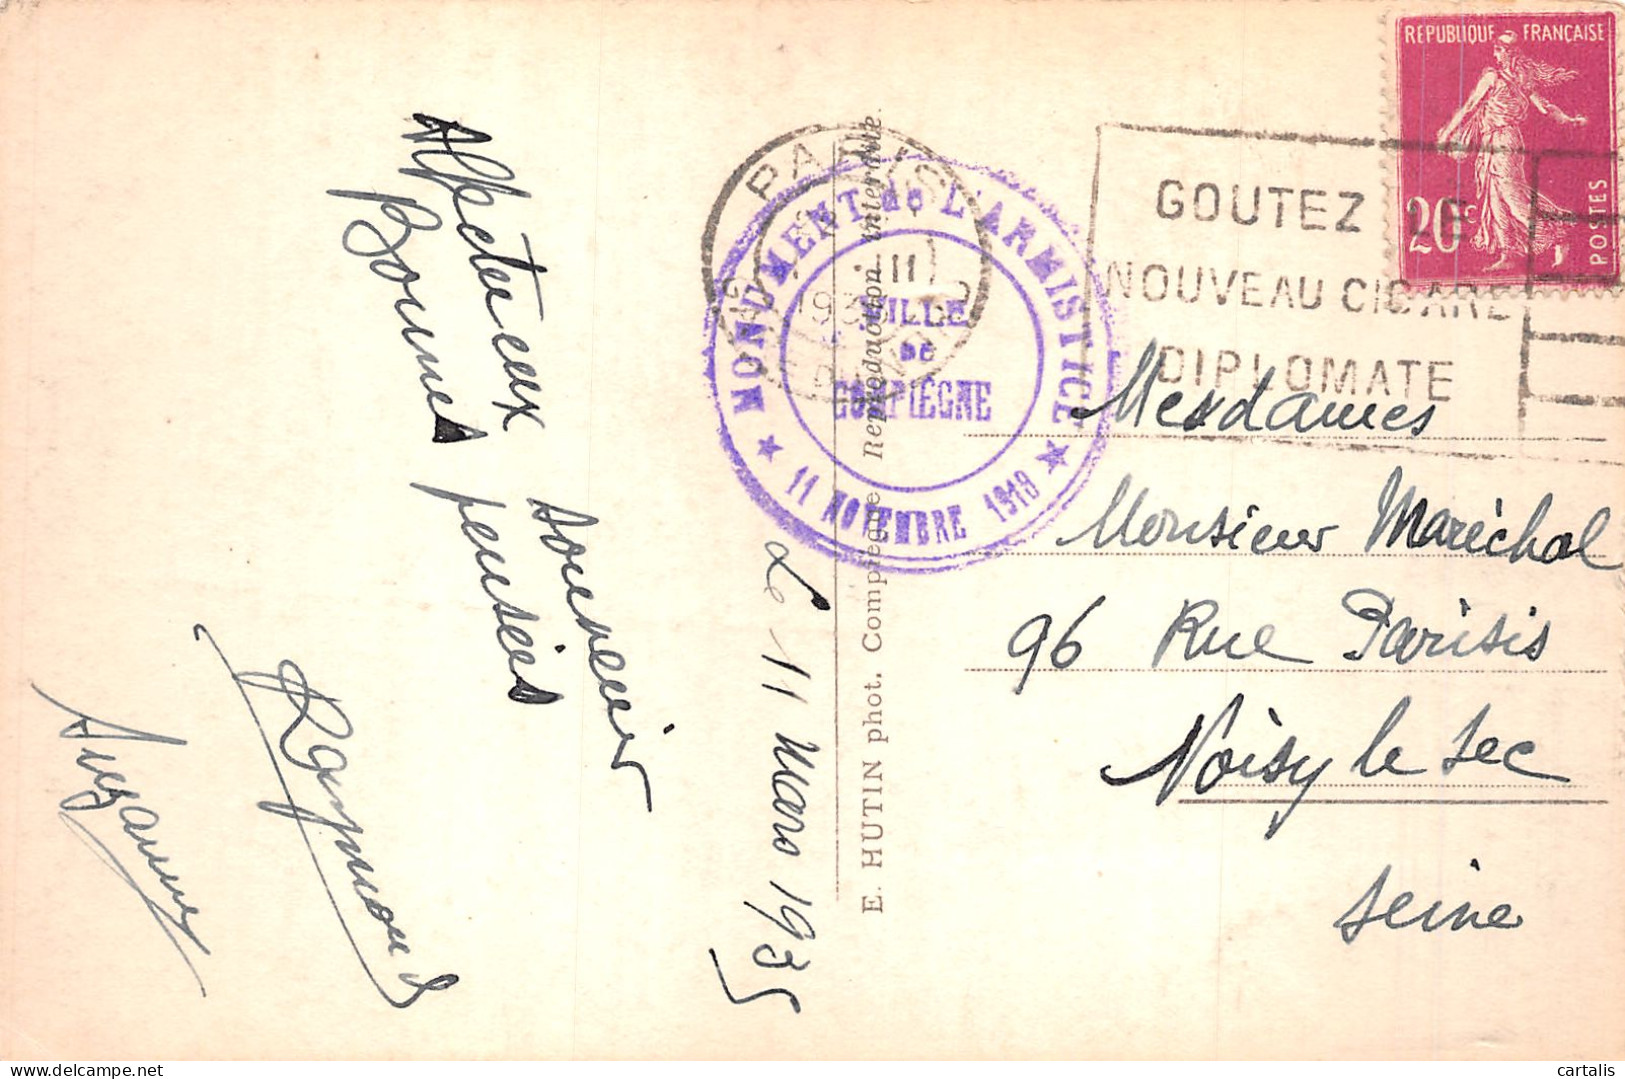 Le 11 Mars 1935
Affectueux souvenir
Bonnes pensées
Raymond
Suzanne
E. HUTIN phot. Compiègne Reproduction interdite.
PARIS
MONUMENT de L'ARMISTICE
VILLE
DE
COMPIÉGNE
★ 11 NOVEMBRE 1918 ★
GOUTEZ LE
NOUVEAU CIGARE
DIPLOMATE
REPUBLIQUE FRANÇAISE
20c
POSTES
Mesdames
Monsieur Maréchal
96 Rue Parisis
Noisy le Sec
Seine
cartalis